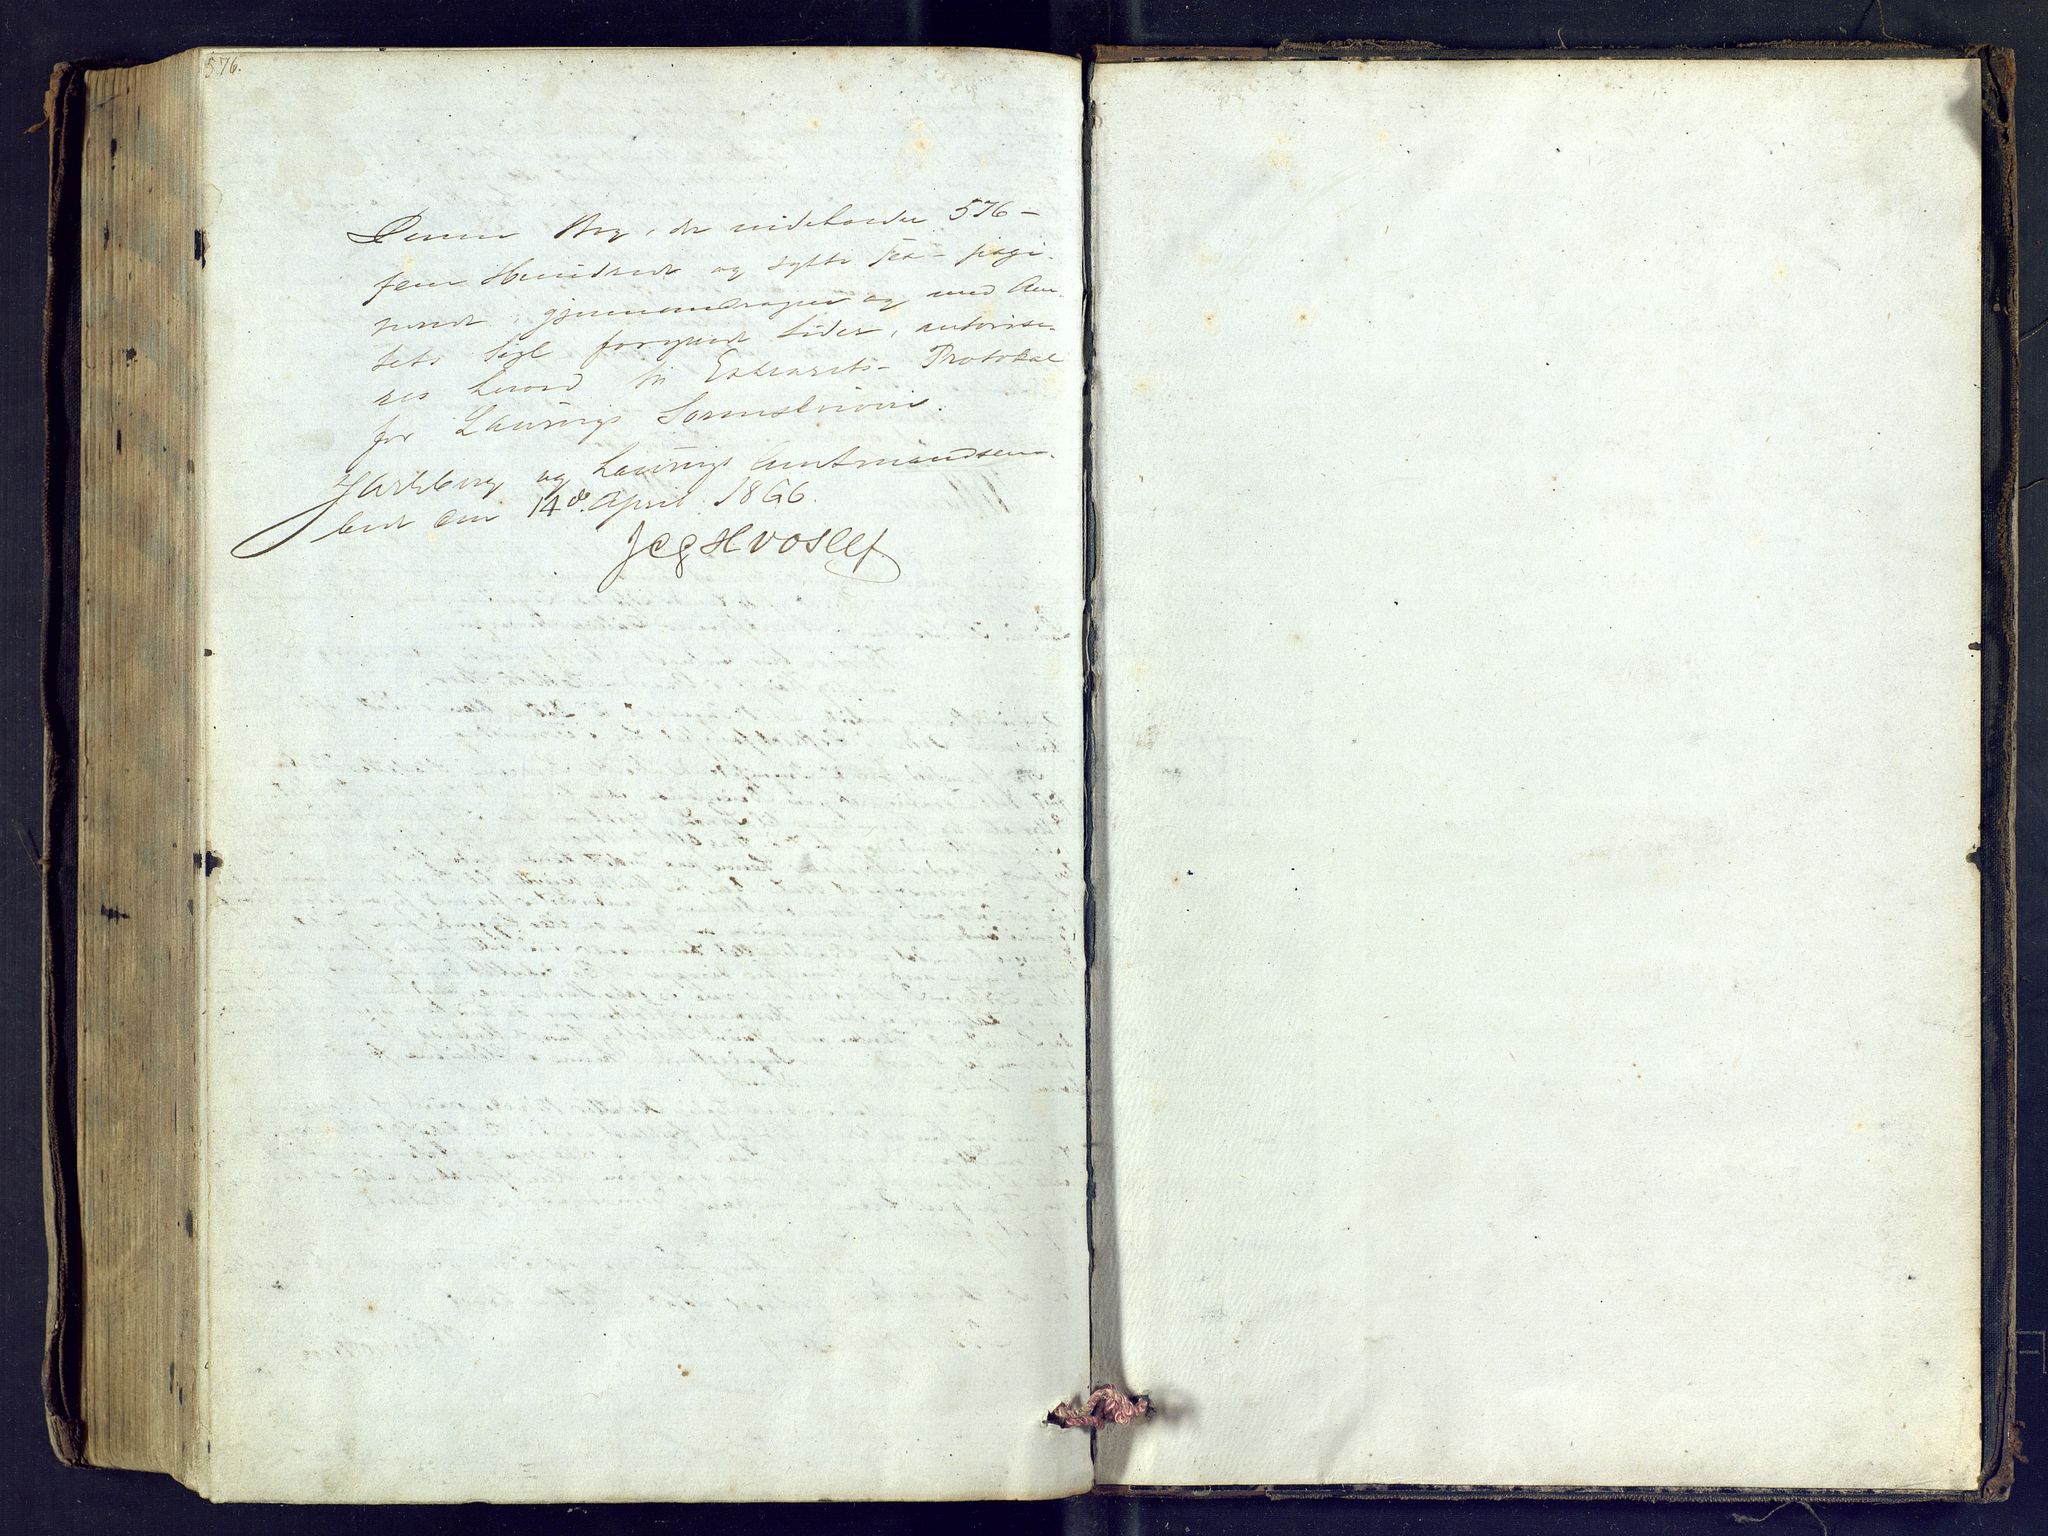 576.
Denne Bog, der indeholder 576 –
fem Hundrede og sytti sex – pagi-
nerede, gjennemdragne og med Am-
tets Segl forsynede Sider, autorise-
res herved til Extrarets- Protokol
for Laurvigs Sorenskriveri.
Jarlsberg og Laurvigs Amtmandsem-
bede den 14de April 1866.
Hvoslef